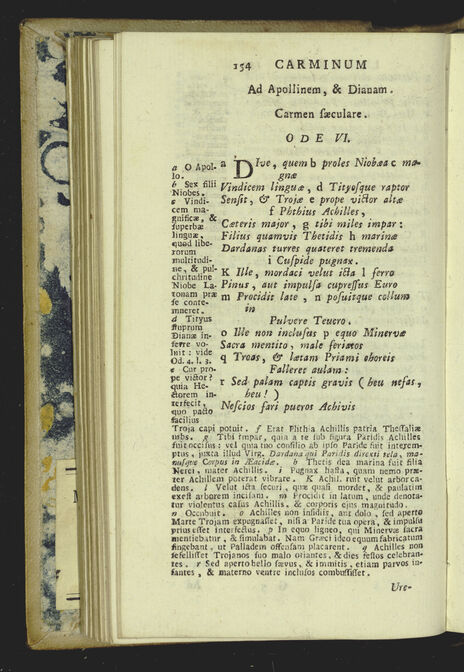 154 CARMINUM
Ad Apollinem, & Dianam.
Carmen sæculare.
ODE VI.
a O Apol-
lo.
b Sex filii
Niobes.
c Vindi-
cem ma-
gnificæ, &
superbæ
linguæ,
quod libe-
rorum
multitudi-
ne, & pul-
chritudine
Niobe La-
tonam præ
se conte-
mneret.
d Tityus
stuprum
Dianæ in-
ferre vo-
luit: vide
Od. 4. l. 3.
e Cur pro-
pe victor?
quia He-
ctorem in-
terfecit,
quo pacto
facilius
a DIve, quem b proles Niobæa c ma-
gnæ
Vindicem linguæ, d Tityosque raptor
Sensit, & Trojæ e prope victor altæ
f Phthius Achilles,
Cæteris major, g tibi miles impar:
Filius quamvis Thetidis h marinæ
Dardanas turres quateret tremenda
i Cuspide pugnax.
K Ille, mordaci velut icta l ferro
Pinus, aut impulsa cupressus Euro
m Procidit late, n posuitque collum
in
Pulvere Teucro.
o Ille non inclusus p equo Minervæ
Sacra mentito, male feriatos
q Troas, & lætam Priami choreis
Falleret aulam:
r Sed palam captis gravis (heu nefas,
heu!)
Nescios fari pueros Achivis
Troja capi potuit. f Erat Phthia Achillis patria Thessaliæ
urbs. g Tibi impar, quia a te sub figura Paridis Achilles
fuit occisus: vel quia tuo consilio ab ipso Paride fuit interem-
ptus, juxta illud Virg. Dardana qui Paridis direxti tela, ma-
nusque Corpus in Æacidæ. h Thetis dea marina fuit filia
Nerei, mater Achillis. i Pugnax hasta, quam nemo præ-
ter Achillem poterat vibrare. K Achil. ruit velut arbor cæ-
dens. l Velut icta securi, quæ quasi mordet, & paulatim
exest arborem incisam. m Procidit in latum, unde denota-
tur violentus casus Achillis, & corporis ejus magnitudo.
n Occubuit. o Achilles non insidiis, aut dolo, sed aperto
Marte Trojam expugnasset, nisi a Paride tua opera, & impulsu
prius esset interfectus. p In equo ligneo, qui Minervæ sacra
mentiebatur, & simulabat. Nam Græci ideo equum fabricatum
fingebant, ut Palladem offensam placarent. q Achilles non
fefellisset Trojanos suo malo otiantes, & dies festos celebran-
tes. r Sed aperto bello sævus, & immitis, etiam parvos in-
fantes, & materno ventre inclusos combussisset.
Ure-